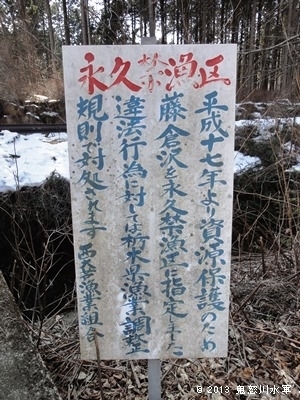 永久禁漁区
平成十七年より資源保護のため
藤倉沢を永久禁漁区に指定しました
違法行為に対しては栃木県漁業調整
規則で対処されます
漁業組合
© 2013 鬼怒川水軍